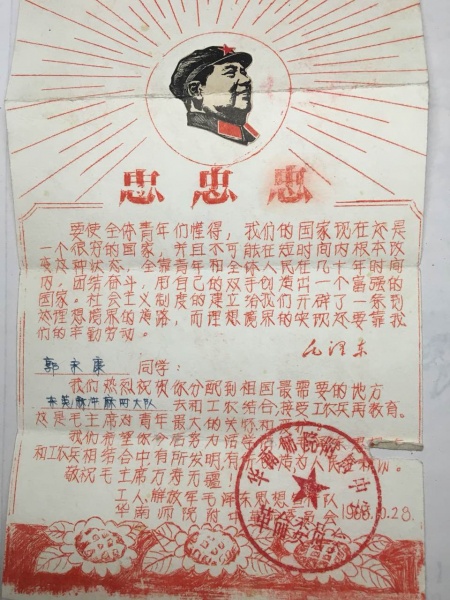 忠 忠 忠
要使全体青年们懂得，我们的国家现在还是
一个很穷的国家，并且不可能在短时间内根本改
变这种状态，全靠青年和全体人民在几十年时间
内，团结奋斗，用自己的双手创造出一个富强的
国家。社会主义制度的建立给我们开辟了一条到
达理想境界的道路，而理想境界的实现还要靠我
们的辛勤劳动。
毛泽东
郭永康 同学：
我们热烈祝贺你分配到祖国最需要的地方
大队 去和工农结合，接受工农兵再教育。
这是毛主席对青年最大的关怀和
我们希望你今后将为活学
和工农兵相结合中有所发明，有 为人民
敬祝毛主席万寿无疆！
工人、解放军毛泽东思想 队
华南师院附中 会
1968.10.28.
华南师院附属中学
革命委员会